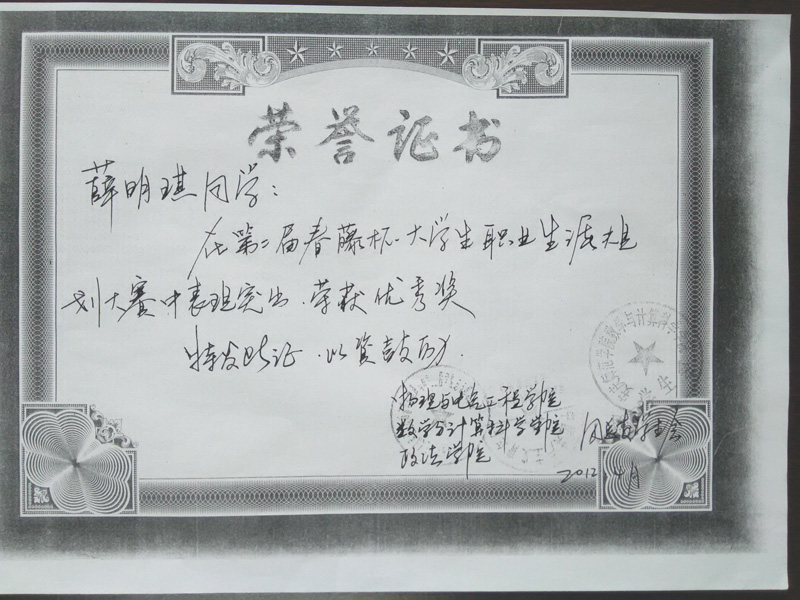 荣誉证书
薛明琪同学：
在第二届春藤杯大学生职业生涯规
划大赛中表现突出，荣获优秀奖
特发此证，以资鼓励。
物理与电气工程学院
数学与计算科学学院
政法学院
2012 4月